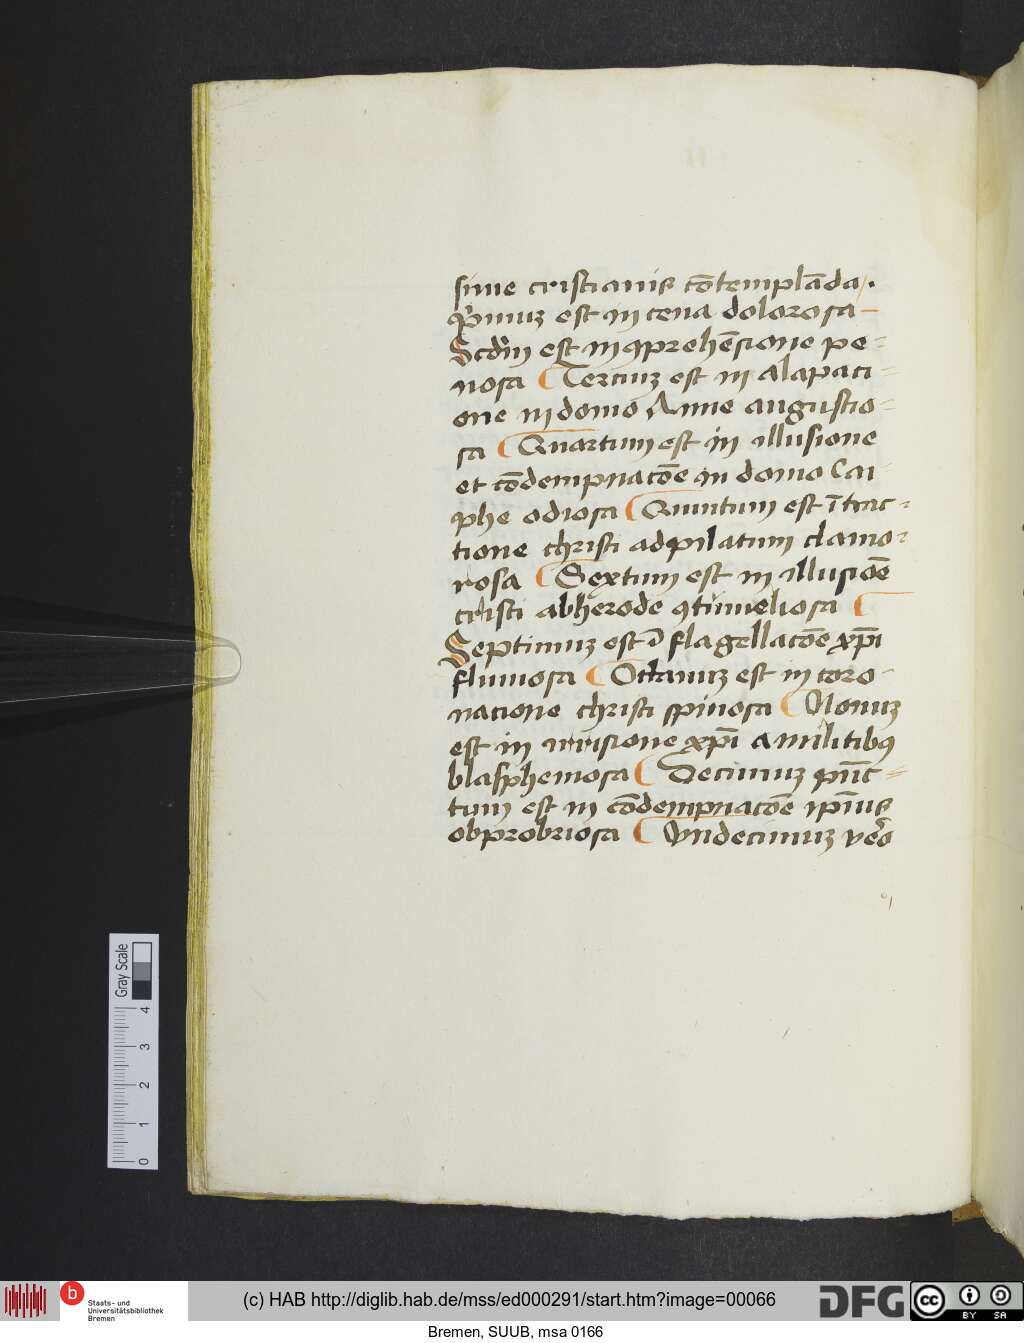 sime cristianis cōtemplāda.
Primuʒ est in cena dolorosa
Scdm̄ est in ꝯprehēsione pe-
nosa Terciuʒ est in alapaci-
one in domo Anne angustio-
sa Quartum est in illusione
et cōdempnacōe in domo Cai-
phe odiosa Quintum est ī trac-
tione christi ad pilatum clamo-
rosa Sextum est in illusiōe
cristi ab herode ꝯtimeliosa
Septimuʒ est ī flagellacōe xp̄i
fluuiosa Octauuʒ est in coro-
nacione christi spinosa Nonuʒ
est in irrisione xp̄i a militibꝰ
blasphemosa Decimuʒ pūc-
tum est in cōdempnacōe ip̄ius
obprobriosa Vndecimuʒ vēo
Gray Scale
4
3
2
1
0
b
Staats- und
Universitätsbibliothek
Bremen
(c) HAB http://diglib.hab.de/mss/ed000291/start.htm?image=00066
DFG
cc
BY SA
Bremen, SUUB, msa 0166